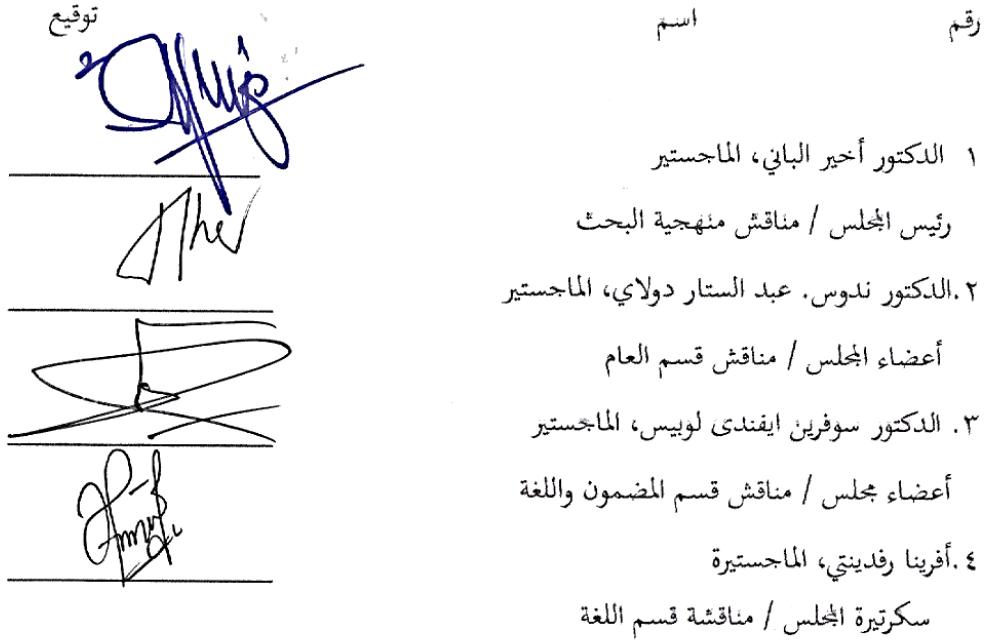 رقم اسم توقيع
١ الدكتور أخير الباني، الماجستير
رئيس المجلس / مناقش منهجية البحث
٢.الدكتور ندوس. عبد الستار دولاي، الماجستير
أعضاء المجلس / مناقش قسم العام
٣. الدكتور سوفرين ايفندى لوبيس، الماجستير
أعضاء مجلس / مناقش قسم المضمون واللغة
٤.أفرينا رفدينتي، الماجستيرة
سكرتيرة المجلس / مناقشة قسم اللغة